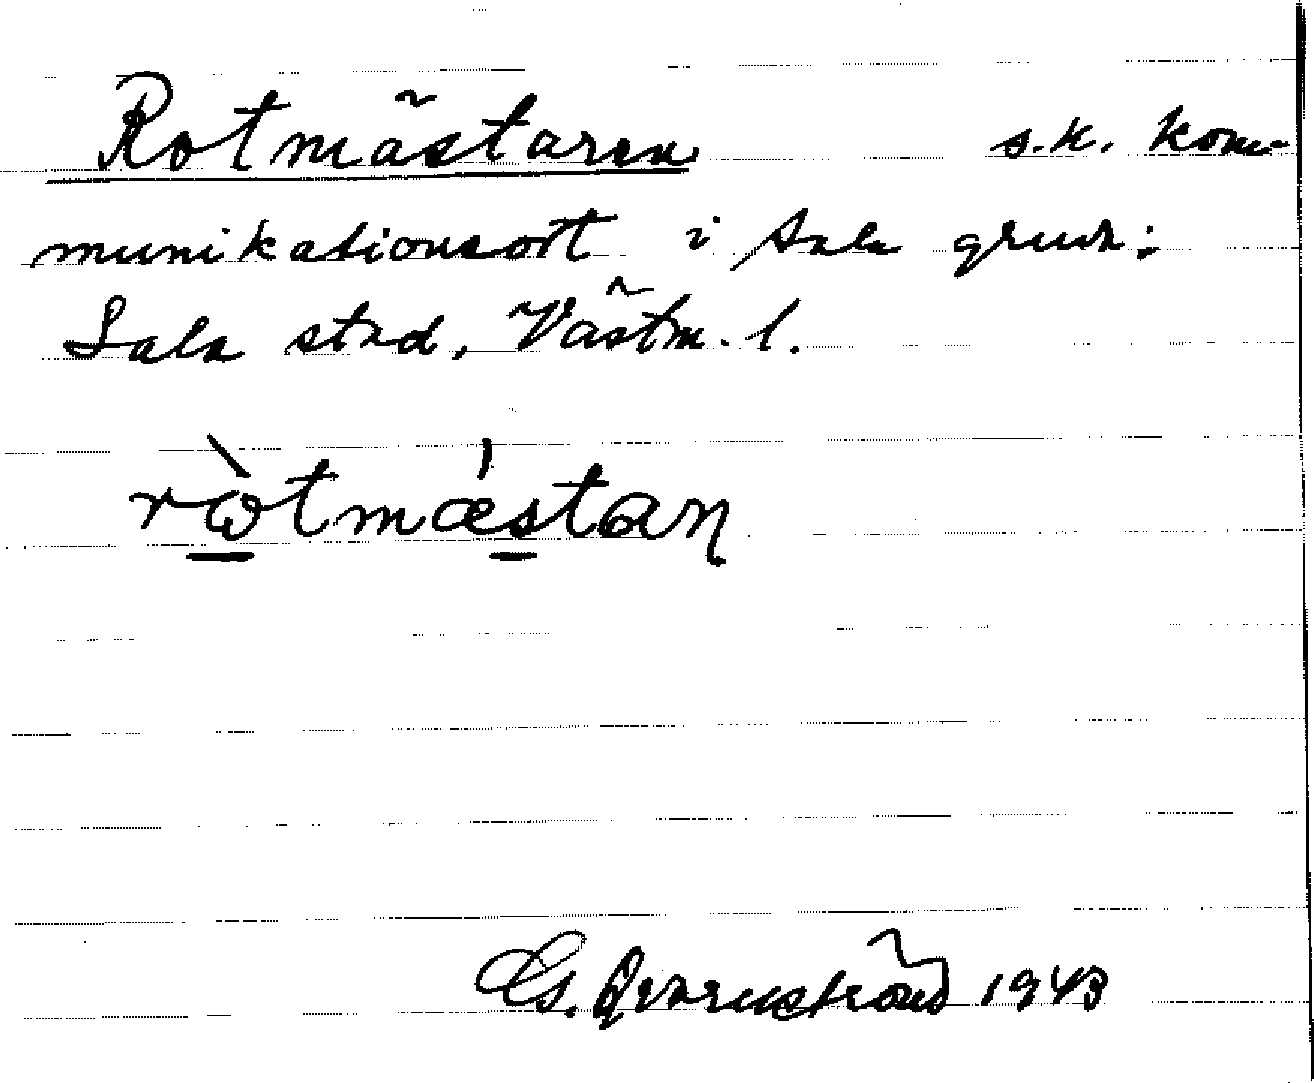 Rotmästaren s.k. kom-
munikationsort i Sala gruva:
Sala stad, Västm. l.
ròtmǽstaɳ
Gs. Qvarnström 1943